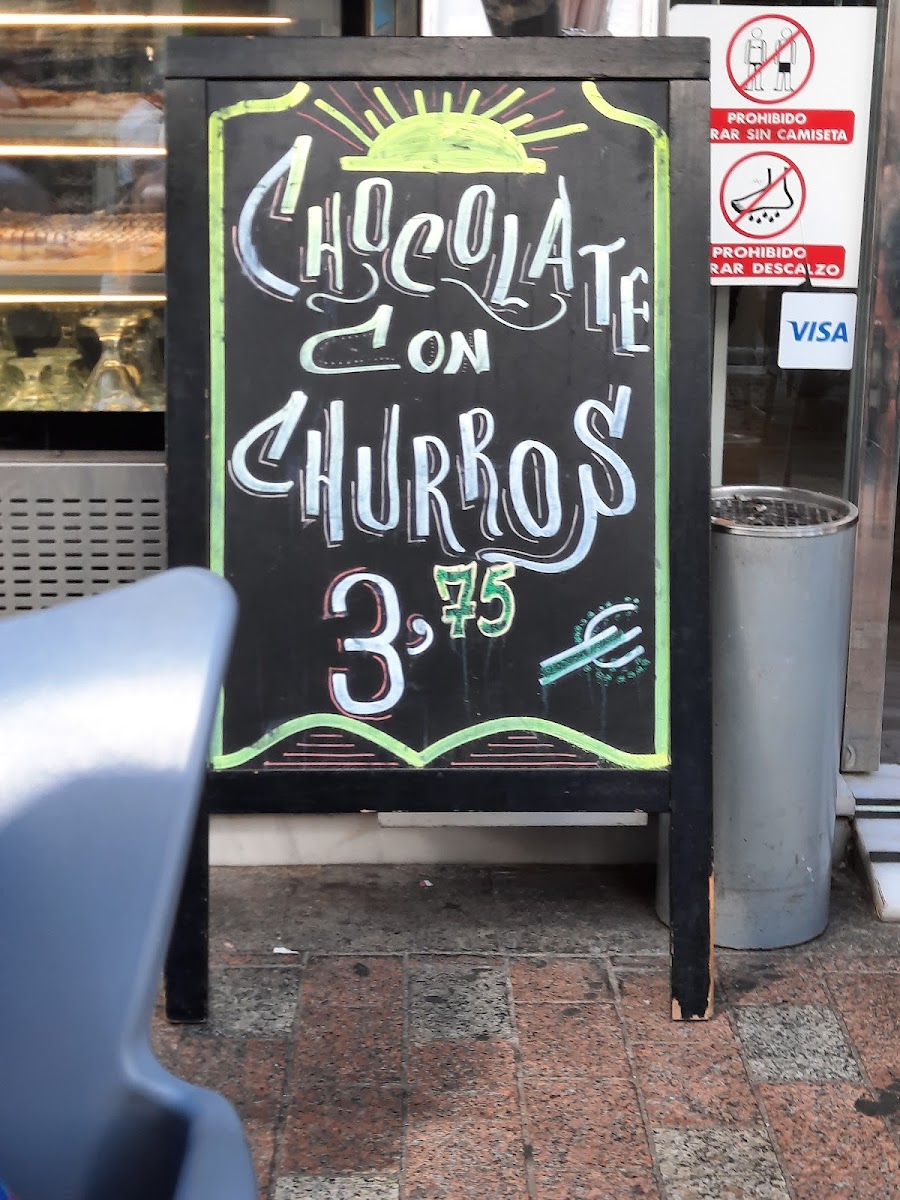 CHOCOLATE
CON
CHURROS
3,75 €
PROHIBIDO
RAR SIN CAMISETA
PROHIBIDO
RAR DESCALZO
VISA